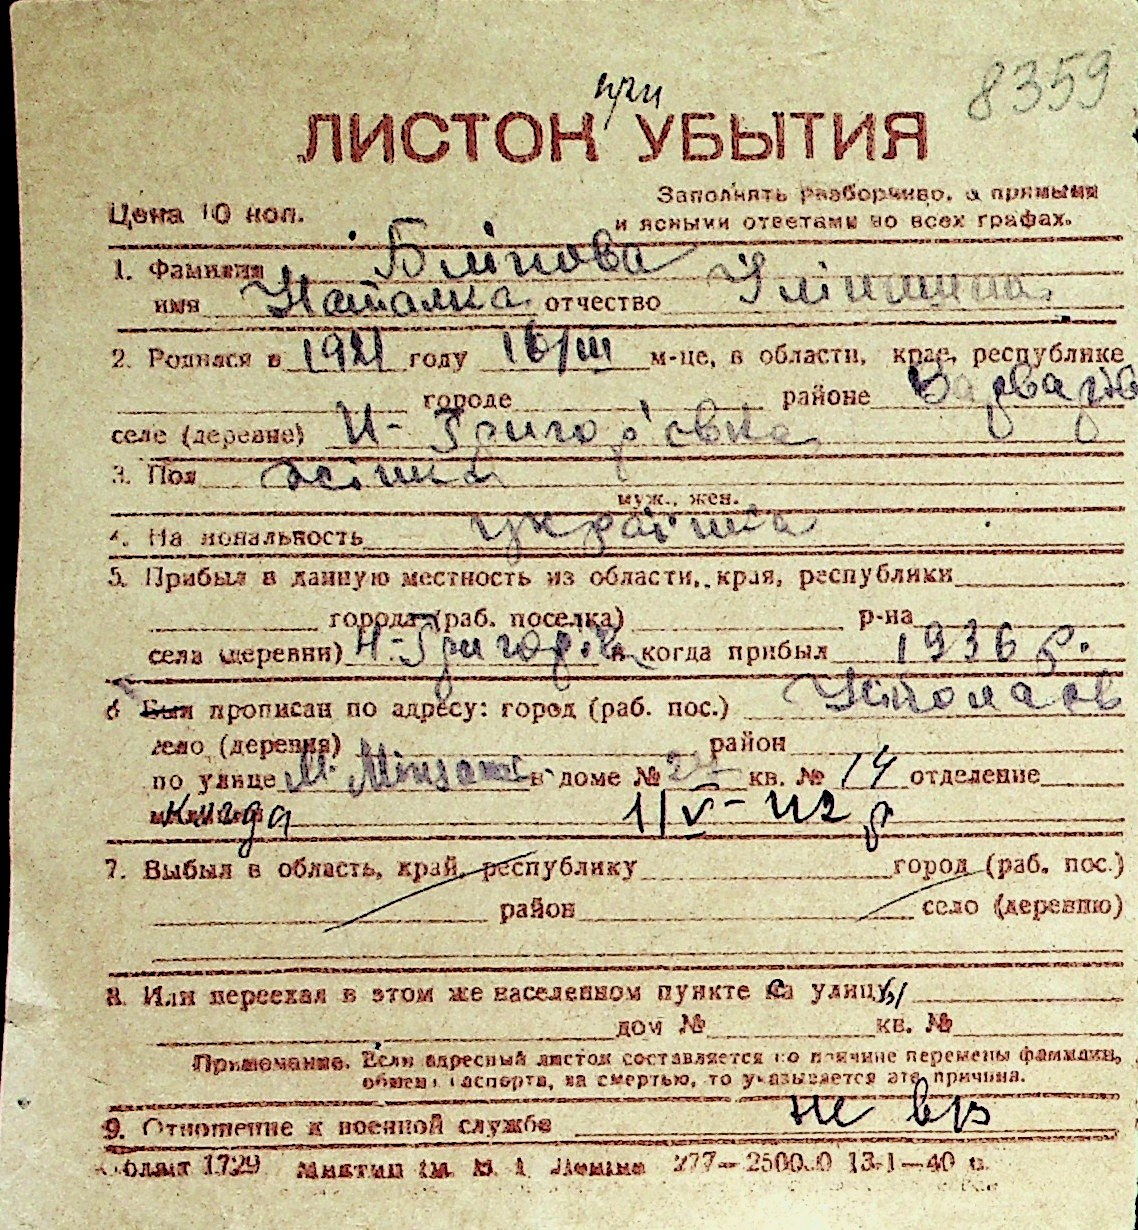 8359
при
ЛИСТОК УБЫТИЯ
Цена 10 коп.
Заполнять разборчиво, а прямыми
и ясными ответами во всех графах.
1. Фамилия Блінова
имя Наталка отчество
2. Родился в 1921 году 16/III м-це, в области, крае, республике
городе районе Варварів
селе (деревне) Н-Григор'євка
3. Пол жінка
муж., жен.
4. Национальность українка
5. Прибыл в данную местность из области, края, республики
города (раб. поселка) р-на
села (деревни) Н-Григорів и когда прибыл 1936 р.
6 Был прописан по адресу: город (раб. пос.) Миколаєв
село (деревня) район
по улице в доме № 24 кв. № 14 отделение
милиции куда 1/V-42 р
7. Выбыл в область, край, республику город (раб. пос.)
район село (деревню)
8. Или переехал в этом же населенном пункте с улицы
дом № кв. №
Примечание. Если адресный листок составляется по причине перемены фамилии,
обмена паспорта, за смертью, то указывается эта причина.
9. Отношение к военной службе не вр
Облліт 1729 277—250000 13-1—40 г.